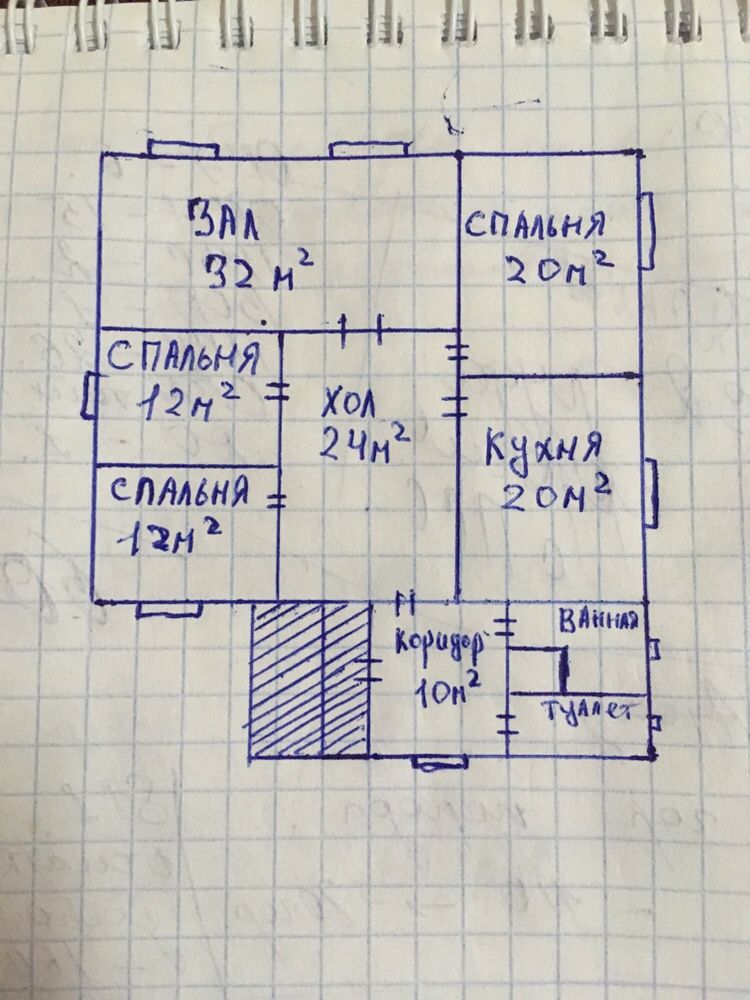 ЗАЛ
32 м²
СПАЛЬНЯ
20м²
СПАЛЬНЯ
12м²
ХОЛ
24м²
КУХНЯ
20м²
СПАЛЬНЯ
12м²
Коридор
10м²
ВАННАЯ
ТУАЛЕТ